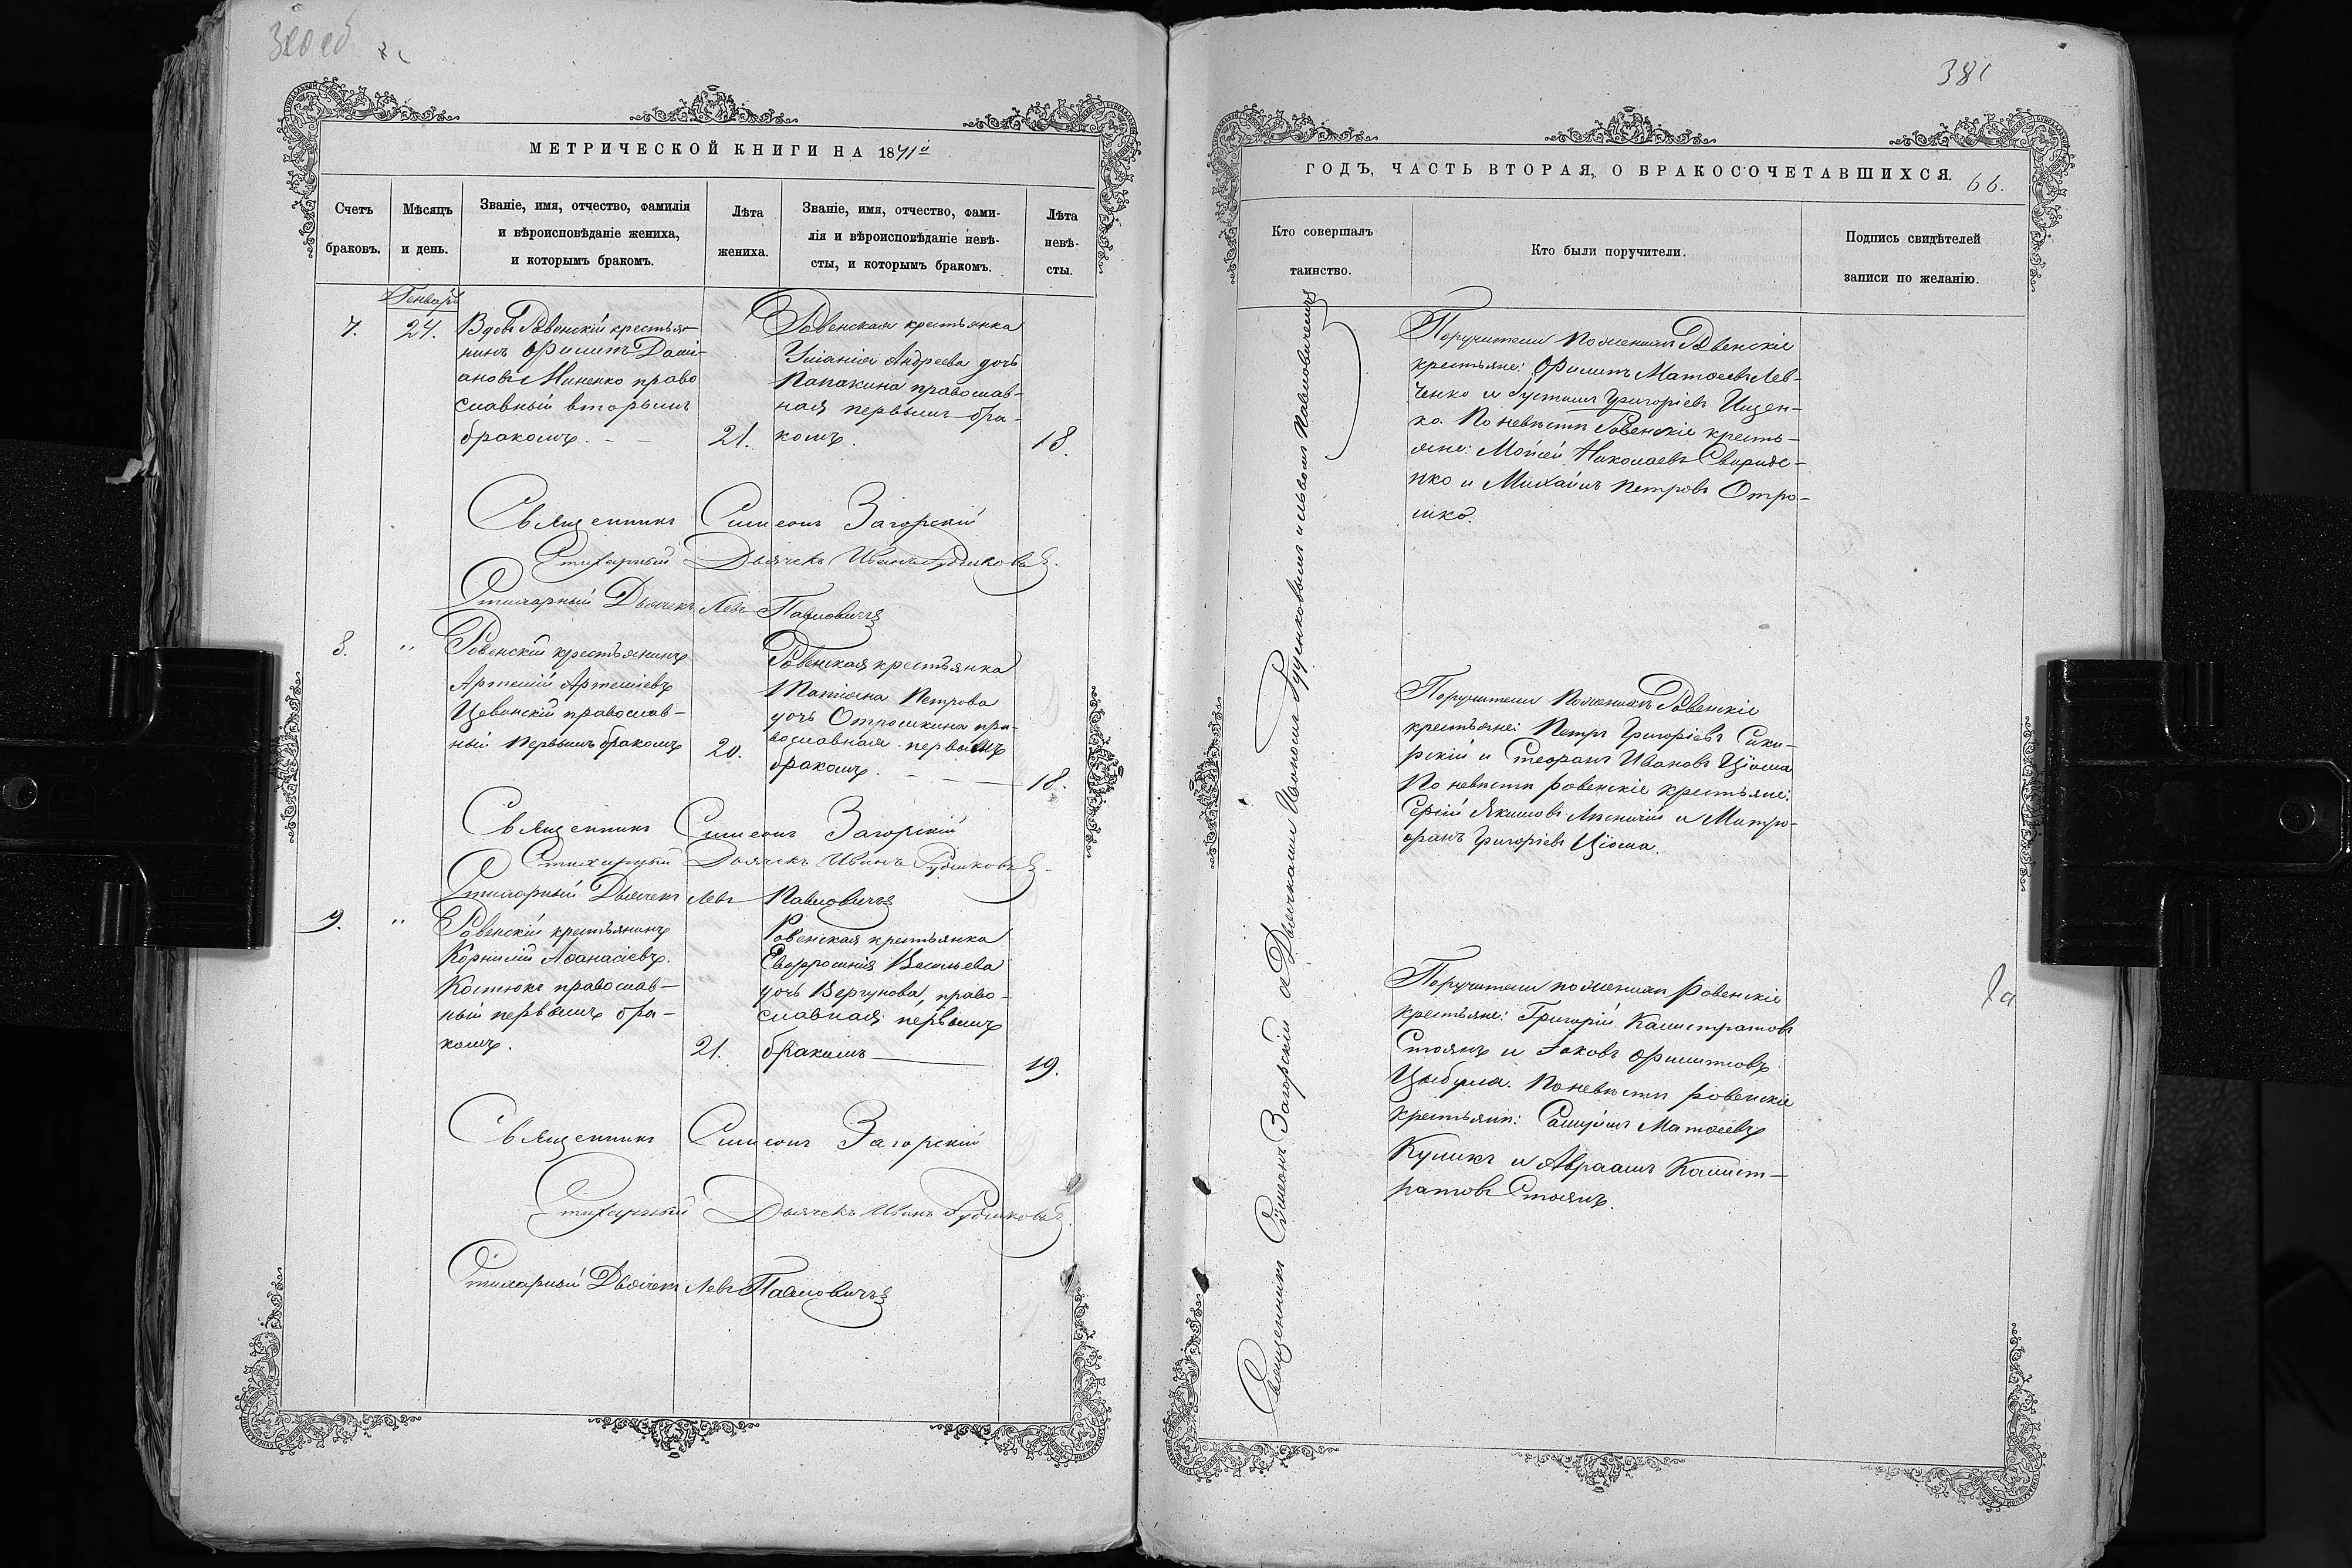 МЕТРИЧЕСКОЙ КНИГИ НА 1871й
Счетъ браковъ.
Мѣсяцъ и день.
Званіе, имя, отчество, фамилія
и вѣроисповѣданіе жениха,
и которымъ бракомъ.
Лѣта жениха.
Званіе, имя, отчество, фами-
лія и вѣроисповѣданіе невѣ-
сты, и которымъ бракомъ.
Лѣта невѣ-
сты.
Генварь
7.
24.
Вдовъ Ровенскій крестья-
нинъ Филипъ Дамі-
ановъ Миненко право
славный вторымъ
бракомъ.
21.
Ровенская крестьянка
Андреева дочь
Папакина православ-
ная первымъ бра-
комъ.
18.
Священникъ Симеонъ Загорскій
Стихарный Дьячекъ Иванъ
Стихарный Дьячекъ Левъ Павловичъ
8.
"
Ровенскій крестьянинъ
Артемій Артеміевъ
Цевинскій православ-
ный первымъ бракомъ
20.
Ровенская крестьянка
Татіана Петрова
дочь Отрошкина пра-
вославная первымъ
бракомъ.
18.
Священникъ Симеонъ Загорскій
Стихарный Дьячекъ Иванъ
Стихарный Дьячекъ Левъ Павловичъ
9.
"
Ровенскій крестьянинъ
Корнилій Аѳанасіевъ
Костюкъ православ-
ный первымъ бра-
комъ.
21.
Ровенская крестьянка
Евфросинія Васильева
дочь Вергунова, право-
славная первымъ
бракомъ
19.
Священникъ Симеонъ Загорскій
Стихарный Дьячекъ Иванъ
Стихарный Дьячекъ Левъ Павловичъ
381
ГОДЪ, ЧАСТЬ ВТОРАЯ, О БРАКОСОЧЕТАВШИХСЯ.
66.
Кто совершалъ
таинство.
Кто были поручители.
Подпись свидѣтелей
записи по желанію.
Священникъ Симеонъ Загорскій съ Дьячками Львомъ Павловичемъ
Поручители по женихѣ Ровенскіе
крестьяне: Филипъ Матѳеевъ Лев-
ченко и Григоріевъ Ищен-
ко. По невѣстѣ Ровенскіе кресть-
яне: Мойсей Николаевъ Свириде-
нко и Михаилъ Петровъ Отро-
шко.
Поручители по женихѣ Ровенскіе
крестьяне: Петръ Григоріевъ Сики-
рскій и Стефанъ Ивановъ Цюма
По невѣстѣ ровенскіе крестьяне:
Сергій Якимовъ и Митро-
фанъ Григоріевъ Цюма.
Поручители по женихѣ ровенскіе
крестьяне: Григорій Калистратовъ
Стоянъ и Іаковъ Филиповъ
Цыбула. По невѣстѣ ровенскіе
крестьяни: Самуилъ Матѳеевъ
Куликъ и Авраамъ Калист-
ратовъ Стоянъ.